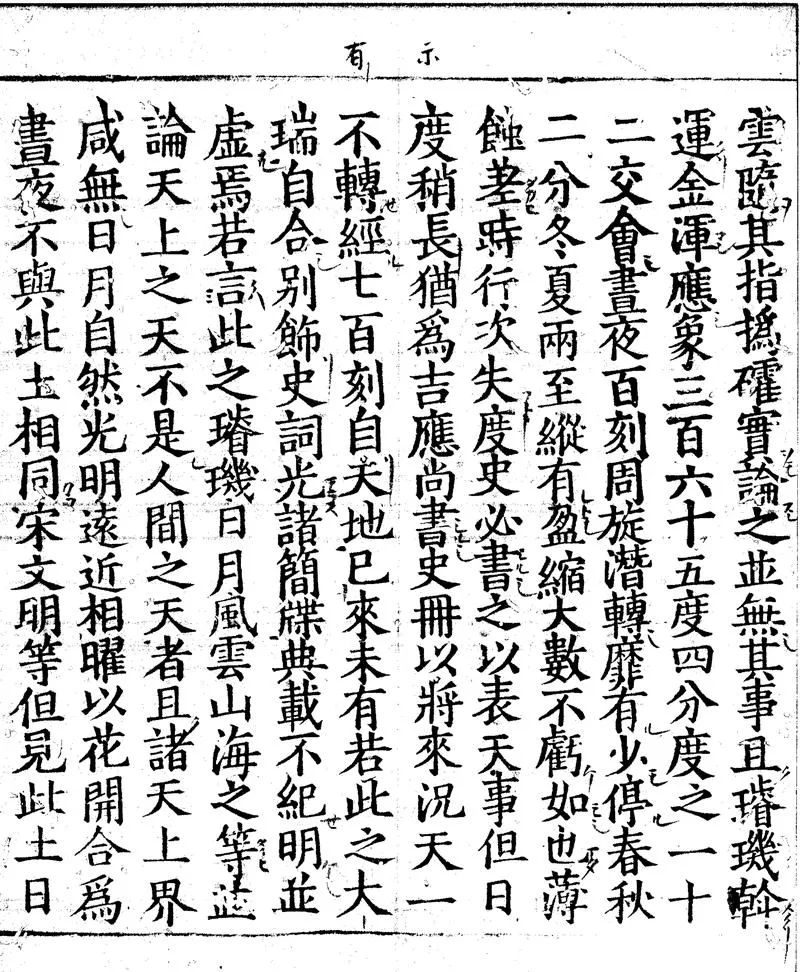 示有
雲隨其指撝礭實論之並無其事且璿璣斡
運金渾應象三百六十五度四分度之一十
二交會晝夜百刻周旋潛轉靡有少停春秋
二分冬夏兩至縱有盈縮大數不虧如也薄
蝕差時行次失度史必書之以表天事但日
度稍長猶爲吉應尚書史冊以將來況天一
不轉經七百刻自天地已來未有若此之大
瑞自合別飾史詞光諸簡牒典載不紀明並
虛焉若言此之璿璣日月風雲山海之等並
論天上之天不是人間之天者且諸天上界
咸無日月自然光明遠近相曜以花開合爲
晝夜不與此土相同宋文明等但見此土日